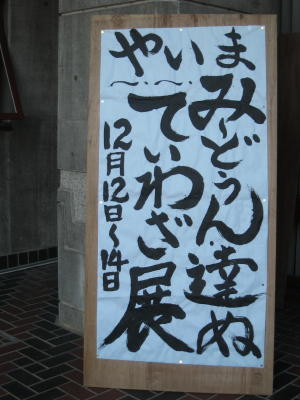 やいま
みーどぅん達ぬ
てぃわざ展
12月12日〜14日